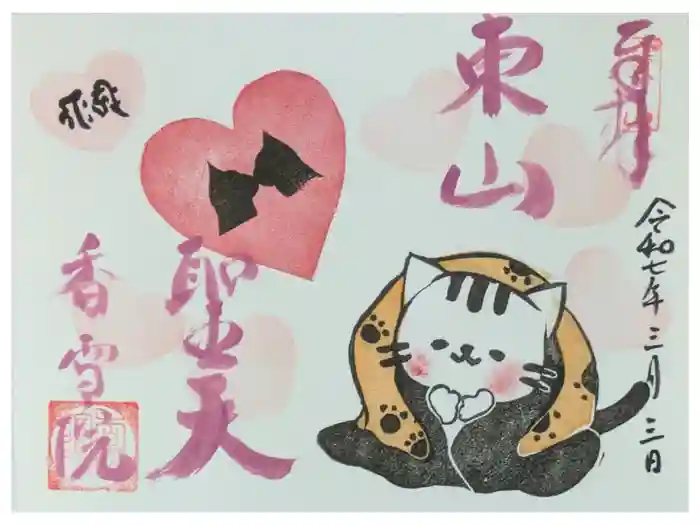 奉拝
東山
令和七年三月三日
聖天
香雪院